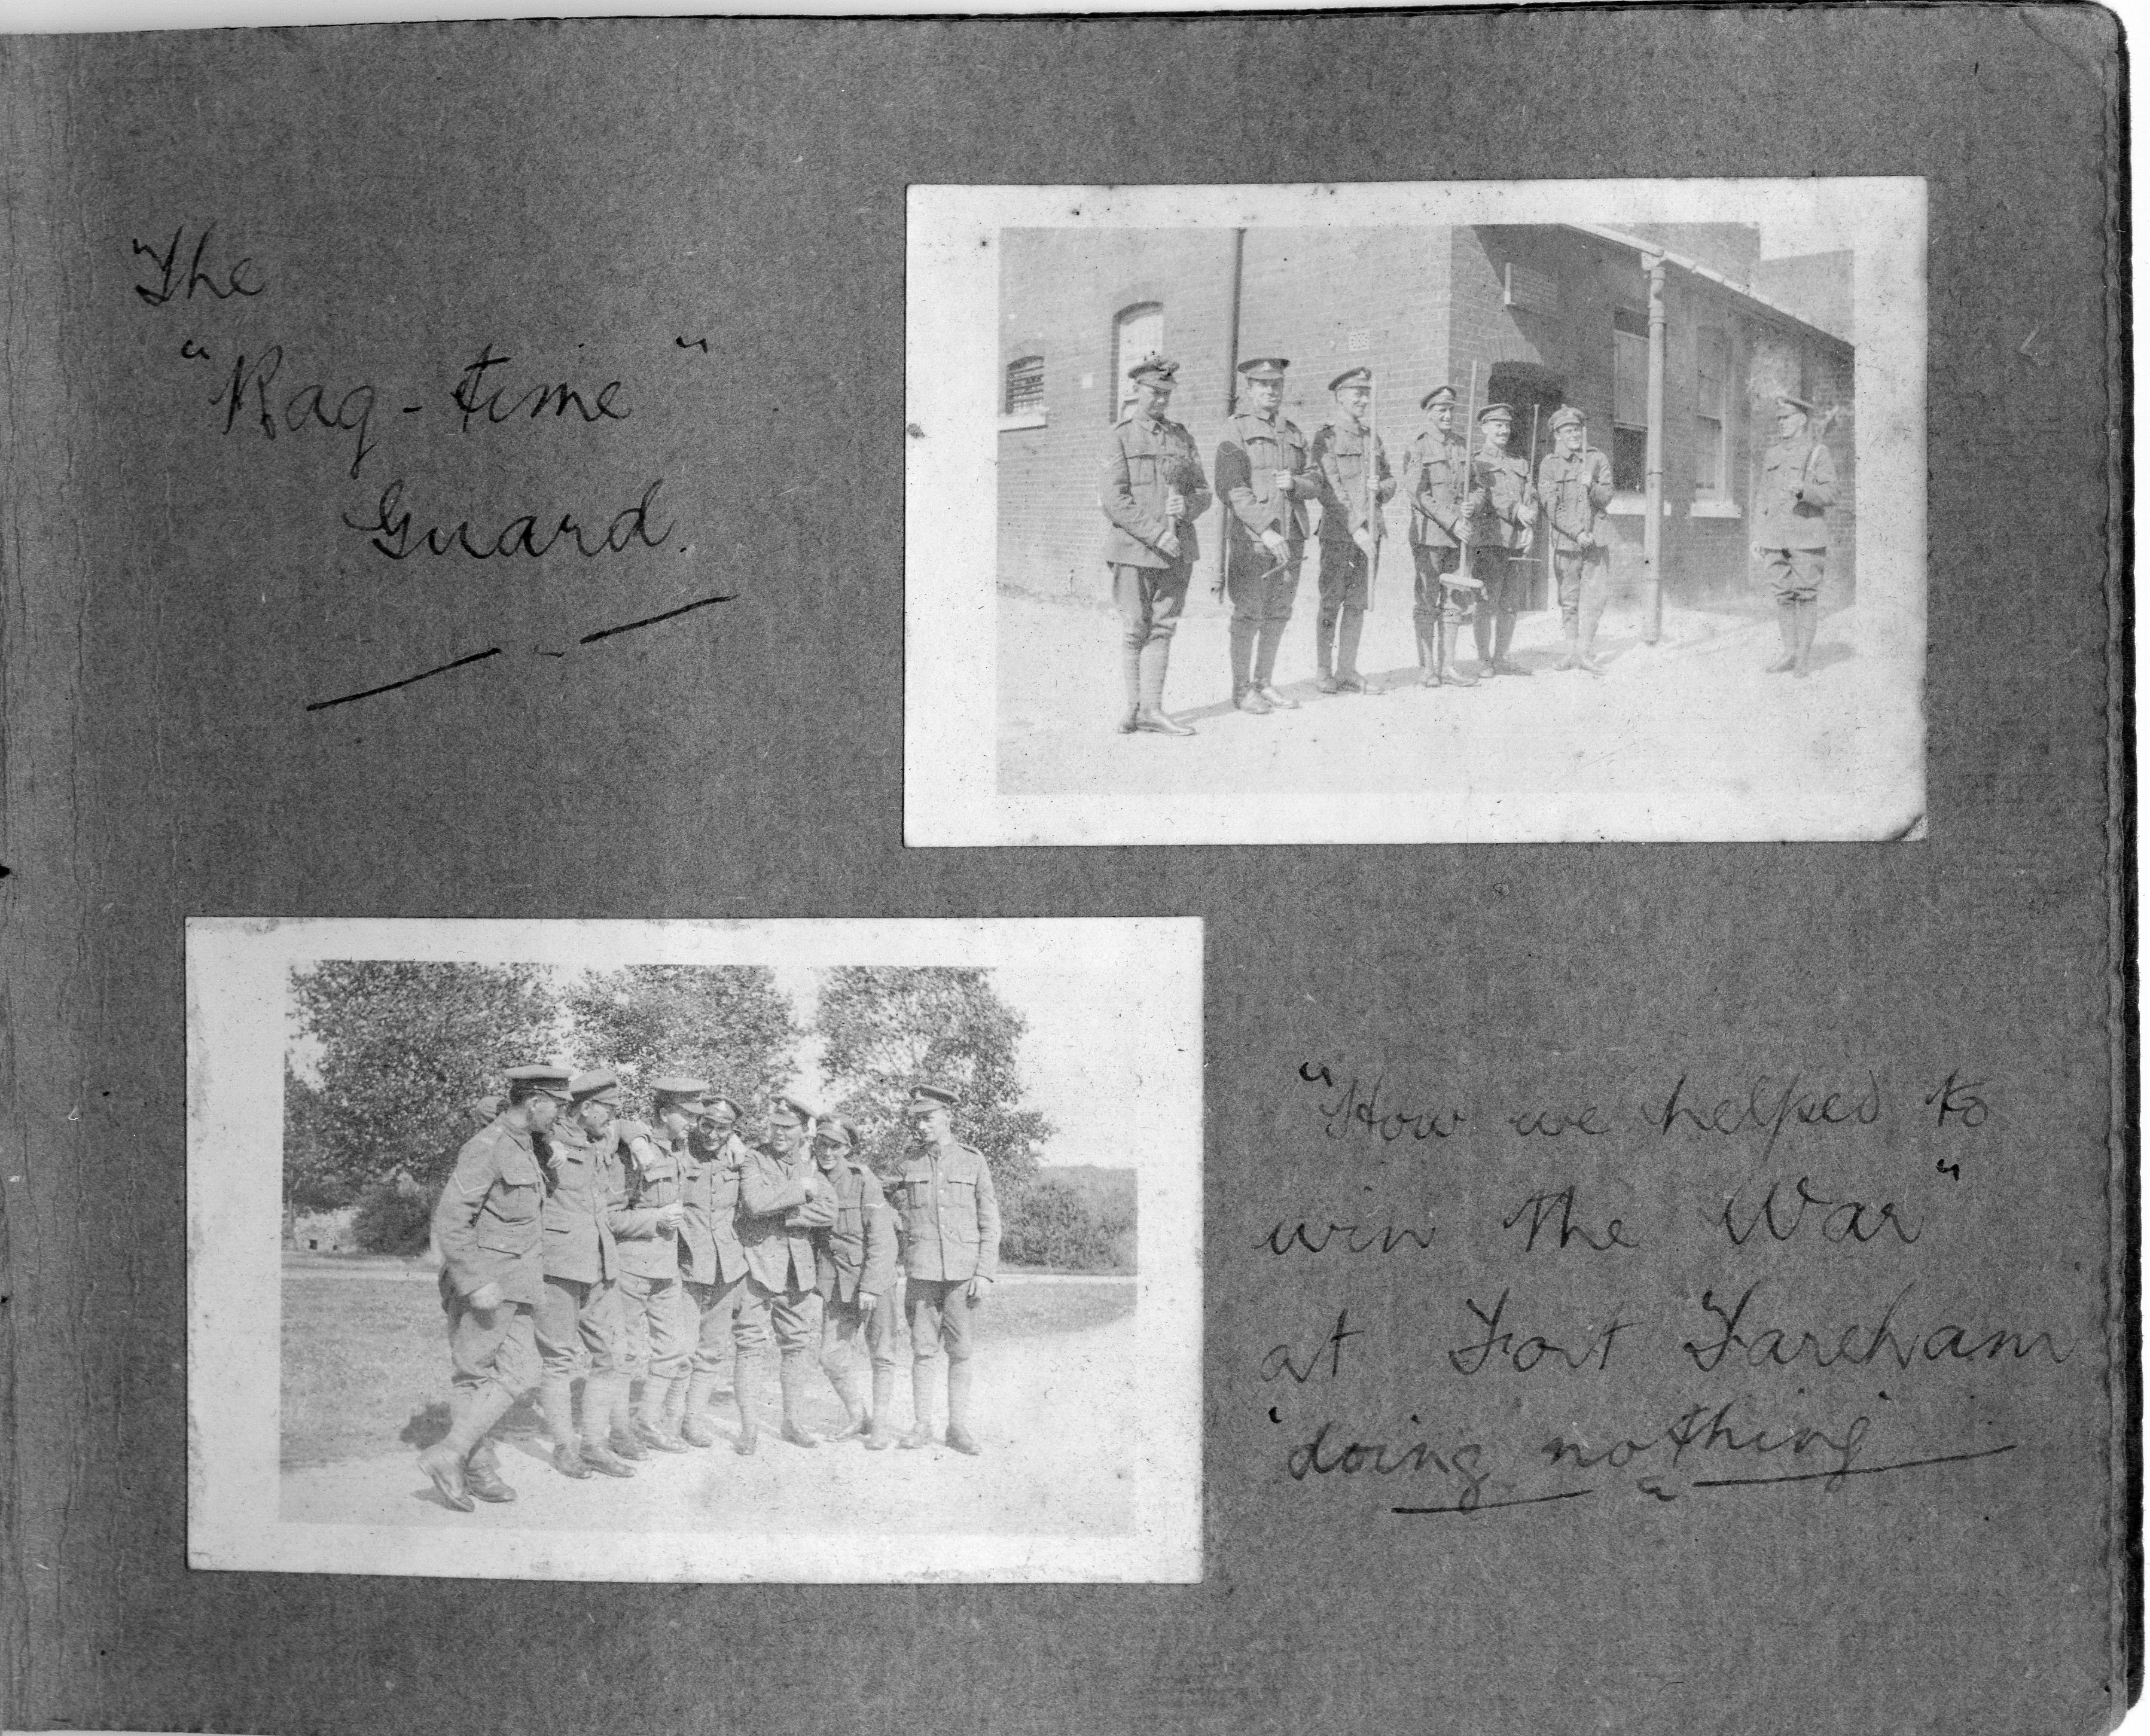 The
"Rag-time"
Guard.
"How we helped to
win the War"
at Fort Fareham
'doing nothing'